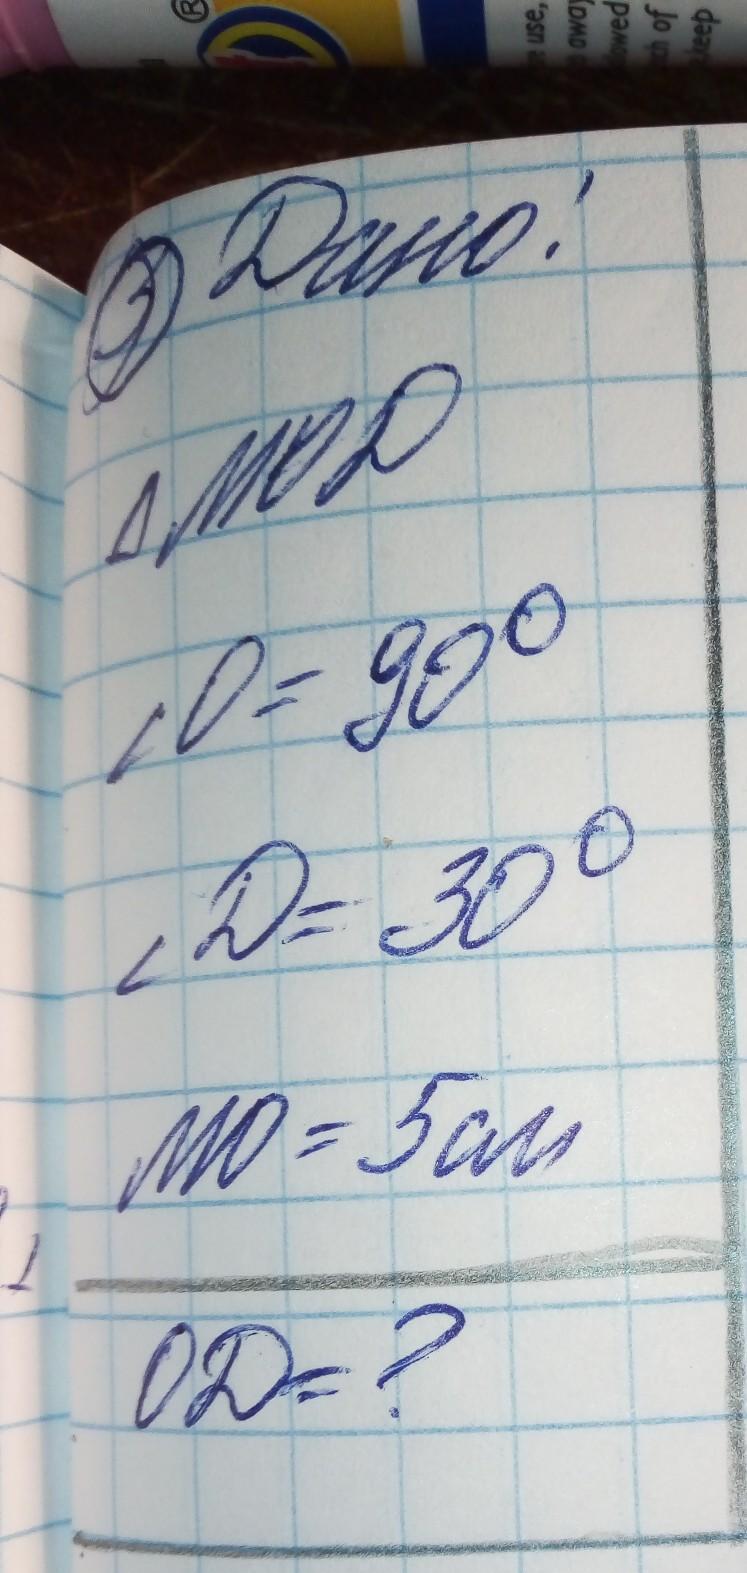 ®
e use,
away
lowed
ch of
keep
③ Дано:
△MOD
∠O = 90°
∠D = 30°
MO = 5см
OD = ?